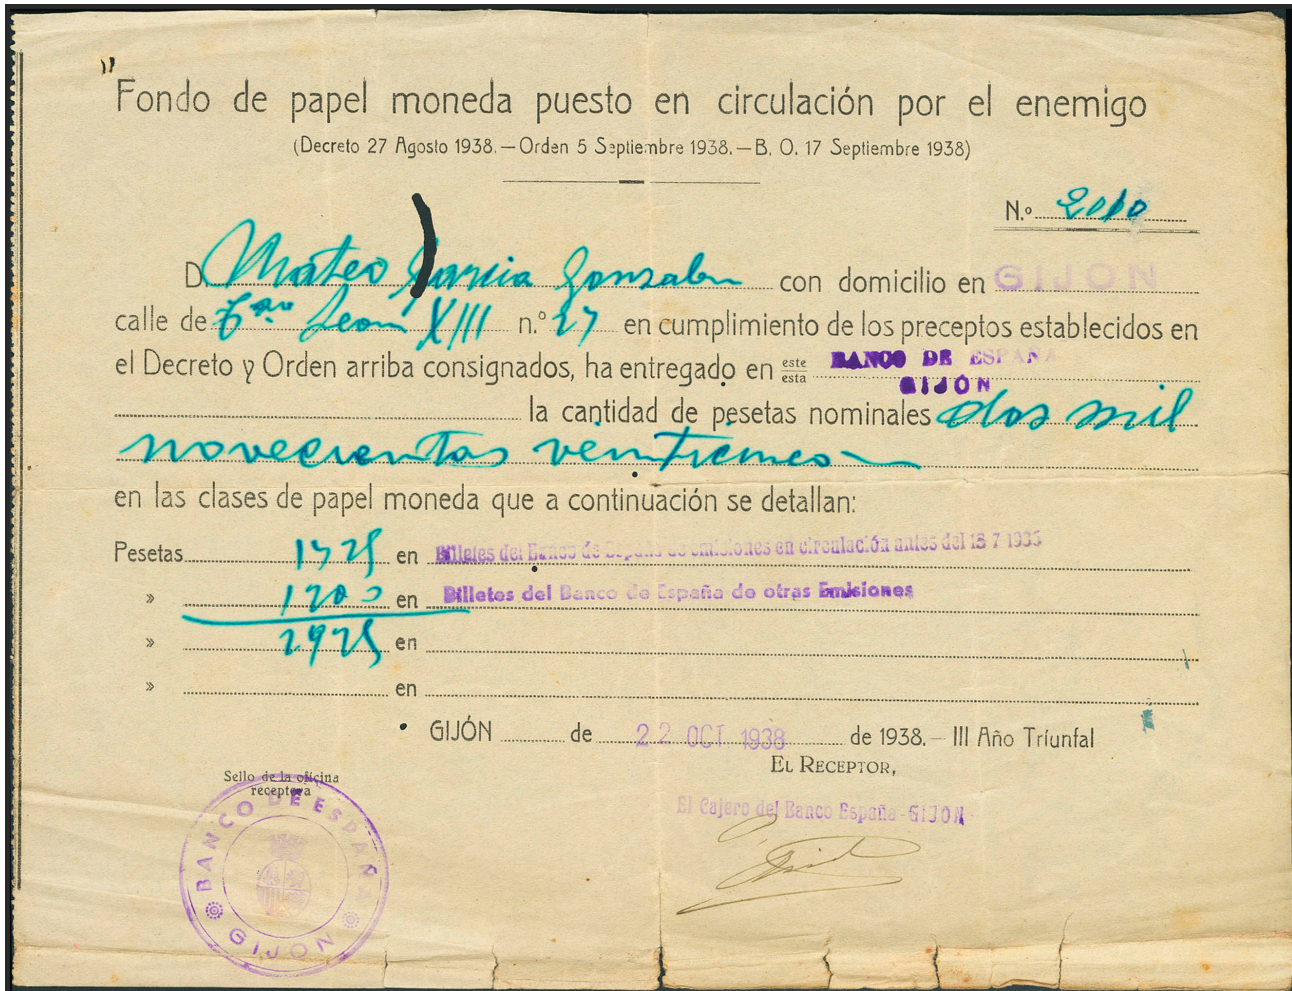 Fondo de papel moneda puesto en circulación por el enemigo
(Decreto 27 Agosto 1938.—Orden 5 Septiembre 1938.—B. O. 17 Septiembre 1938)
N.º
D. Mateo Garcia Gonzalez con domicilio en GIJON
calle de León XIII n.º 27 en cumplimiento de los preceptos establecidos en
el Decreto y Orden arriba consignados, ha entregado en este esta BANCO DE ESPAÑA
GIJÓN
la cantidad de pesetas nominales dos mil
novecientas veinticinco
en las clases de papel moneda que a continuación se detallan:
Pesetas 1725 en Billetes del Banco de España de emisiones en circulación antes del 18 7 1936
» 1200 en Billetes del Banco de España de otras Emisiones
» 2925 en
» en
GIJÓN de 22 OCT 1938 de 1938.— III Año Triunfal
EL RECEPTOR,
Sello de la oficina
receptora
El Cajero del Banco España-GIJON
BANCO DE ESPAÑA
GIJON